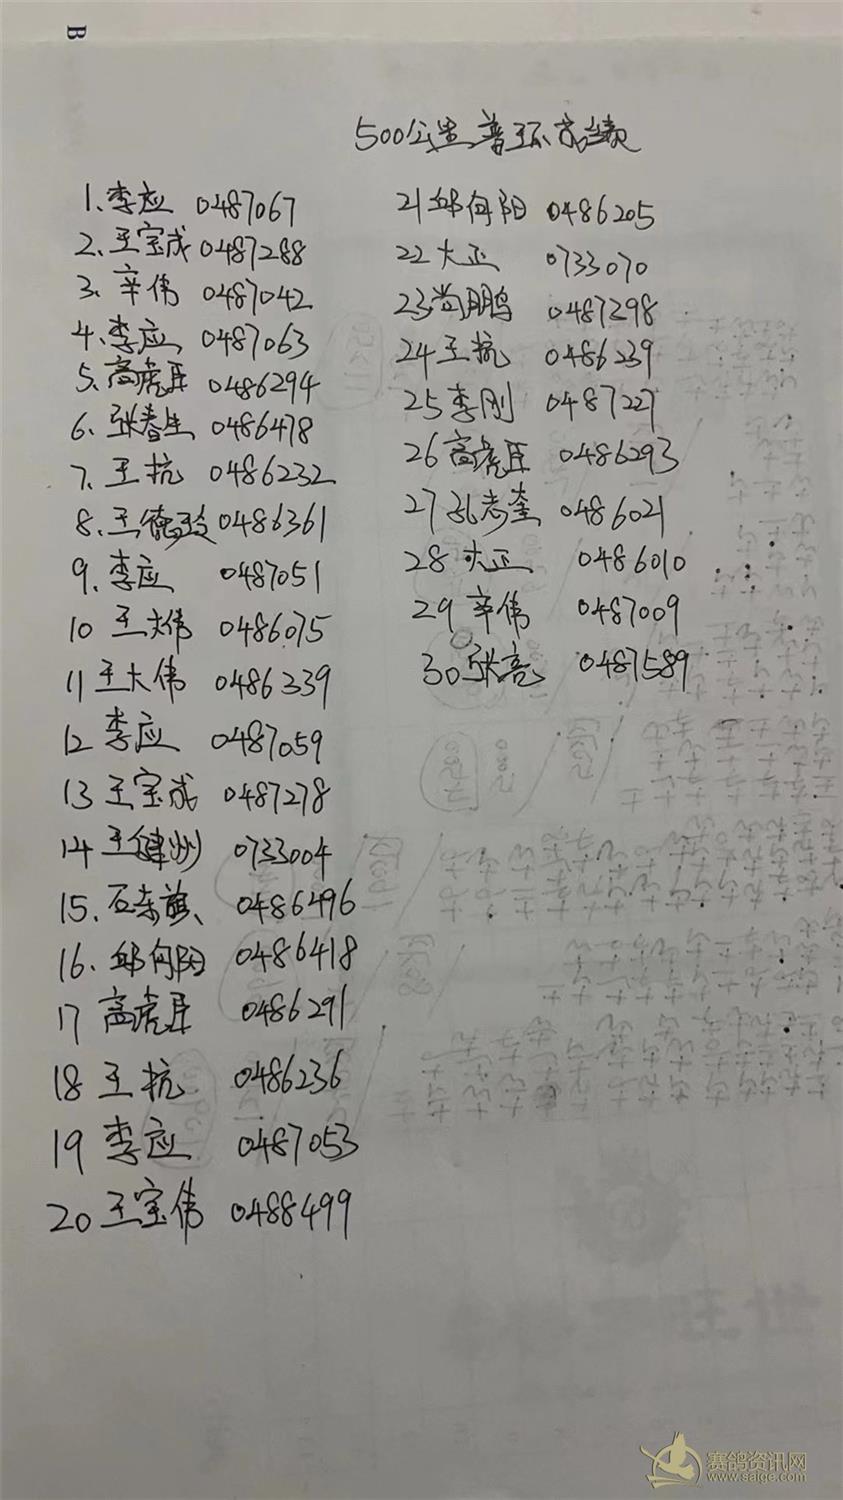 B
500公里普环成绩
1、李应 0487067
2、王宝成 0487288
3、辛伟 0487042
4、李应 0487063
5、高虎臣 0486294
6、张春生 0486478
7、王抗 0486232
8、王德玲 0486361
9、李应 0487051
10 王大伟 0486075
11 王大伟 0486339
12 李应 0487059
13 王宝成 0487278
14 王建州 0733004
15、石 0486496
16、邱向阳 0486418
17 高虎臣 0486291
18 王抗 0486236
19 李应 0487053
20 王宝伟 0488499
21 邱向阳 0486205
22 大正 0733070
23 尚鹏 0487298
24 王抗 0486239
25 李刚 0487227
26 高虎臣 0486293
27 孔志奎 0486021
28 大正 0486010
29 辛伟 0487009
30 张亮 0487589
赛鸽资讯网
www.saige.com